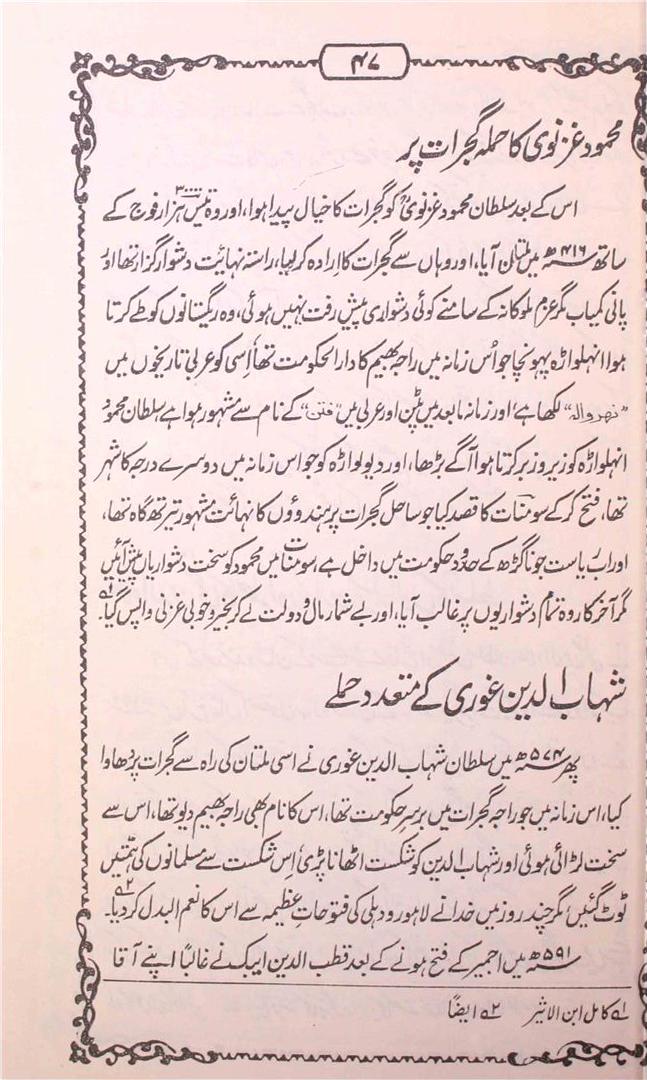 ۴۷
محمود غزنوی کا حملہ گجرات پر
اس کے بعد سلطان محمود غزنویؒ کو گجرات کا خیال پیدا ہوا، اور وہ تیس ۳۰۰۰۰ ہزار فوج کے
ساتھ ۴۱۶ھ میں ملتان آیا، اور وہاں سے گجرات کا ارادہ کر لیا، راستہ نہایت دشوار گزار تھا اور
پانی کمیاب مگر عزم ملوکانہ کے سامنے کوئی دشواری پیش رفت نہیں ہوئی، وہ ریگستانوں کو طے کرتا
ہوا انہلواڑہ پہونچا جو اُس زمانہ میں راجہ بھیم کا دار الحکومت تھا، اسی کو عربی تاریخوں میں
”نهر واله“ لکھا ہے، اور زمانہ مابعد میں پٹن اور عربی میں ”فتن“ کے نام سے مشہور ہوا ہے سلطان محمود
انہلواڑہ کو زیر و زبر کرتا ہوا آگے بڑھا، اور دیولواڑہ کو جو اس زمانہ میں دوسرے درجہ کا شہر
تھا، فتح کر کے سومنات کا قصد کیا جو ساحل گجرات پر ہندوؤں کا نہائت مشہور تیرتھ گاہ تھا،
اور اب ریاست جونا گڑھ کے حدود حکومت میں داخل ہے، سومنات میں محمود کو سخت دشواریاں پیش آئیں
مگر آخر کار وہ تمام دشواریوں پر غالب آیا، اور بے شمار مال و دولت لے کر بخیر و خوبی غزنی واپس گیا۔ ۱؎
شہاب الدین غوری کے متعدد حملے
پھر ۵۷۴ھ میں سلطان شہاب الدین غوری نے اسی ملتان کی راہ سے گجرات پر دھاوا
کیا، اس زمانہ میں جو راجہ گجرات میں برسرِ حکومت تھا، اس کا نام بھی راجہ بھیم دیو تھا، اس سے
سخت لڑائی ہوئی اور شہاب الدین کو شکست اٹھانا پڑی، اس شکست سے مسلمانوں کی ہمتیں
ٹوٹ گئیں، مگر چند روز میں خدا نے لاہور و دہلی کی فتوحاتِ عظیمہ سے اس کا نعم البدل کر دیا۔ ۲؎
۵۹۱ھ میں اجمیر کے فتح ہونے کے بعد قطب الدین ایبک نے غالباً اپنے آقا
۱؎ کامل ابن الاثیر ۲؎ ایضاً